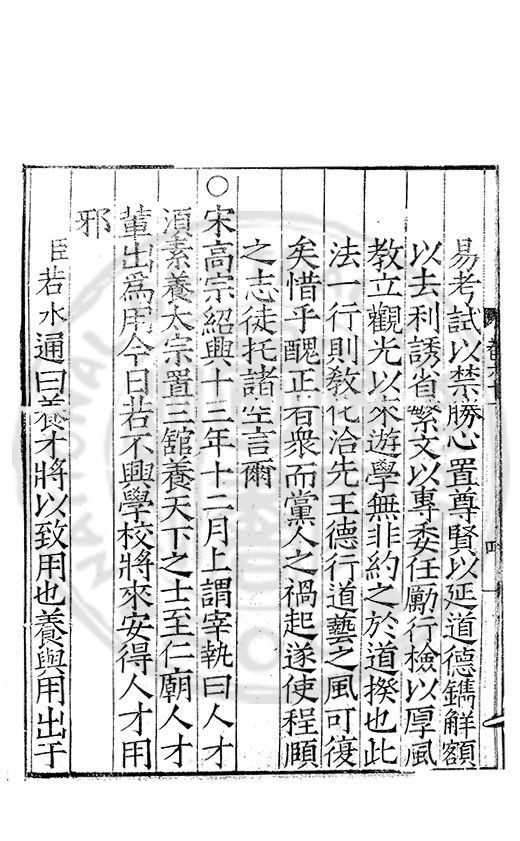 易考試以禁勝心置尊賢以延道德鐫解額
以去利誘省繁文以專委任勵行檢以厚風
教立觀光以來遊學無非約之於道揆也此
法一行則教化洽先王德行道藝之風可復
矣惜乎醜正有眾而黨人之禍起遂使程頤
之志徒托諸空言爾
○宋高宗紹興十三年十二月上謂宰執曰人才
須素養太宗置三館養天下之士至仁廟人才
輩出為用今日若不興學校將來安得人才用
邪
臣若水通曰養才將以致用也養與用出于